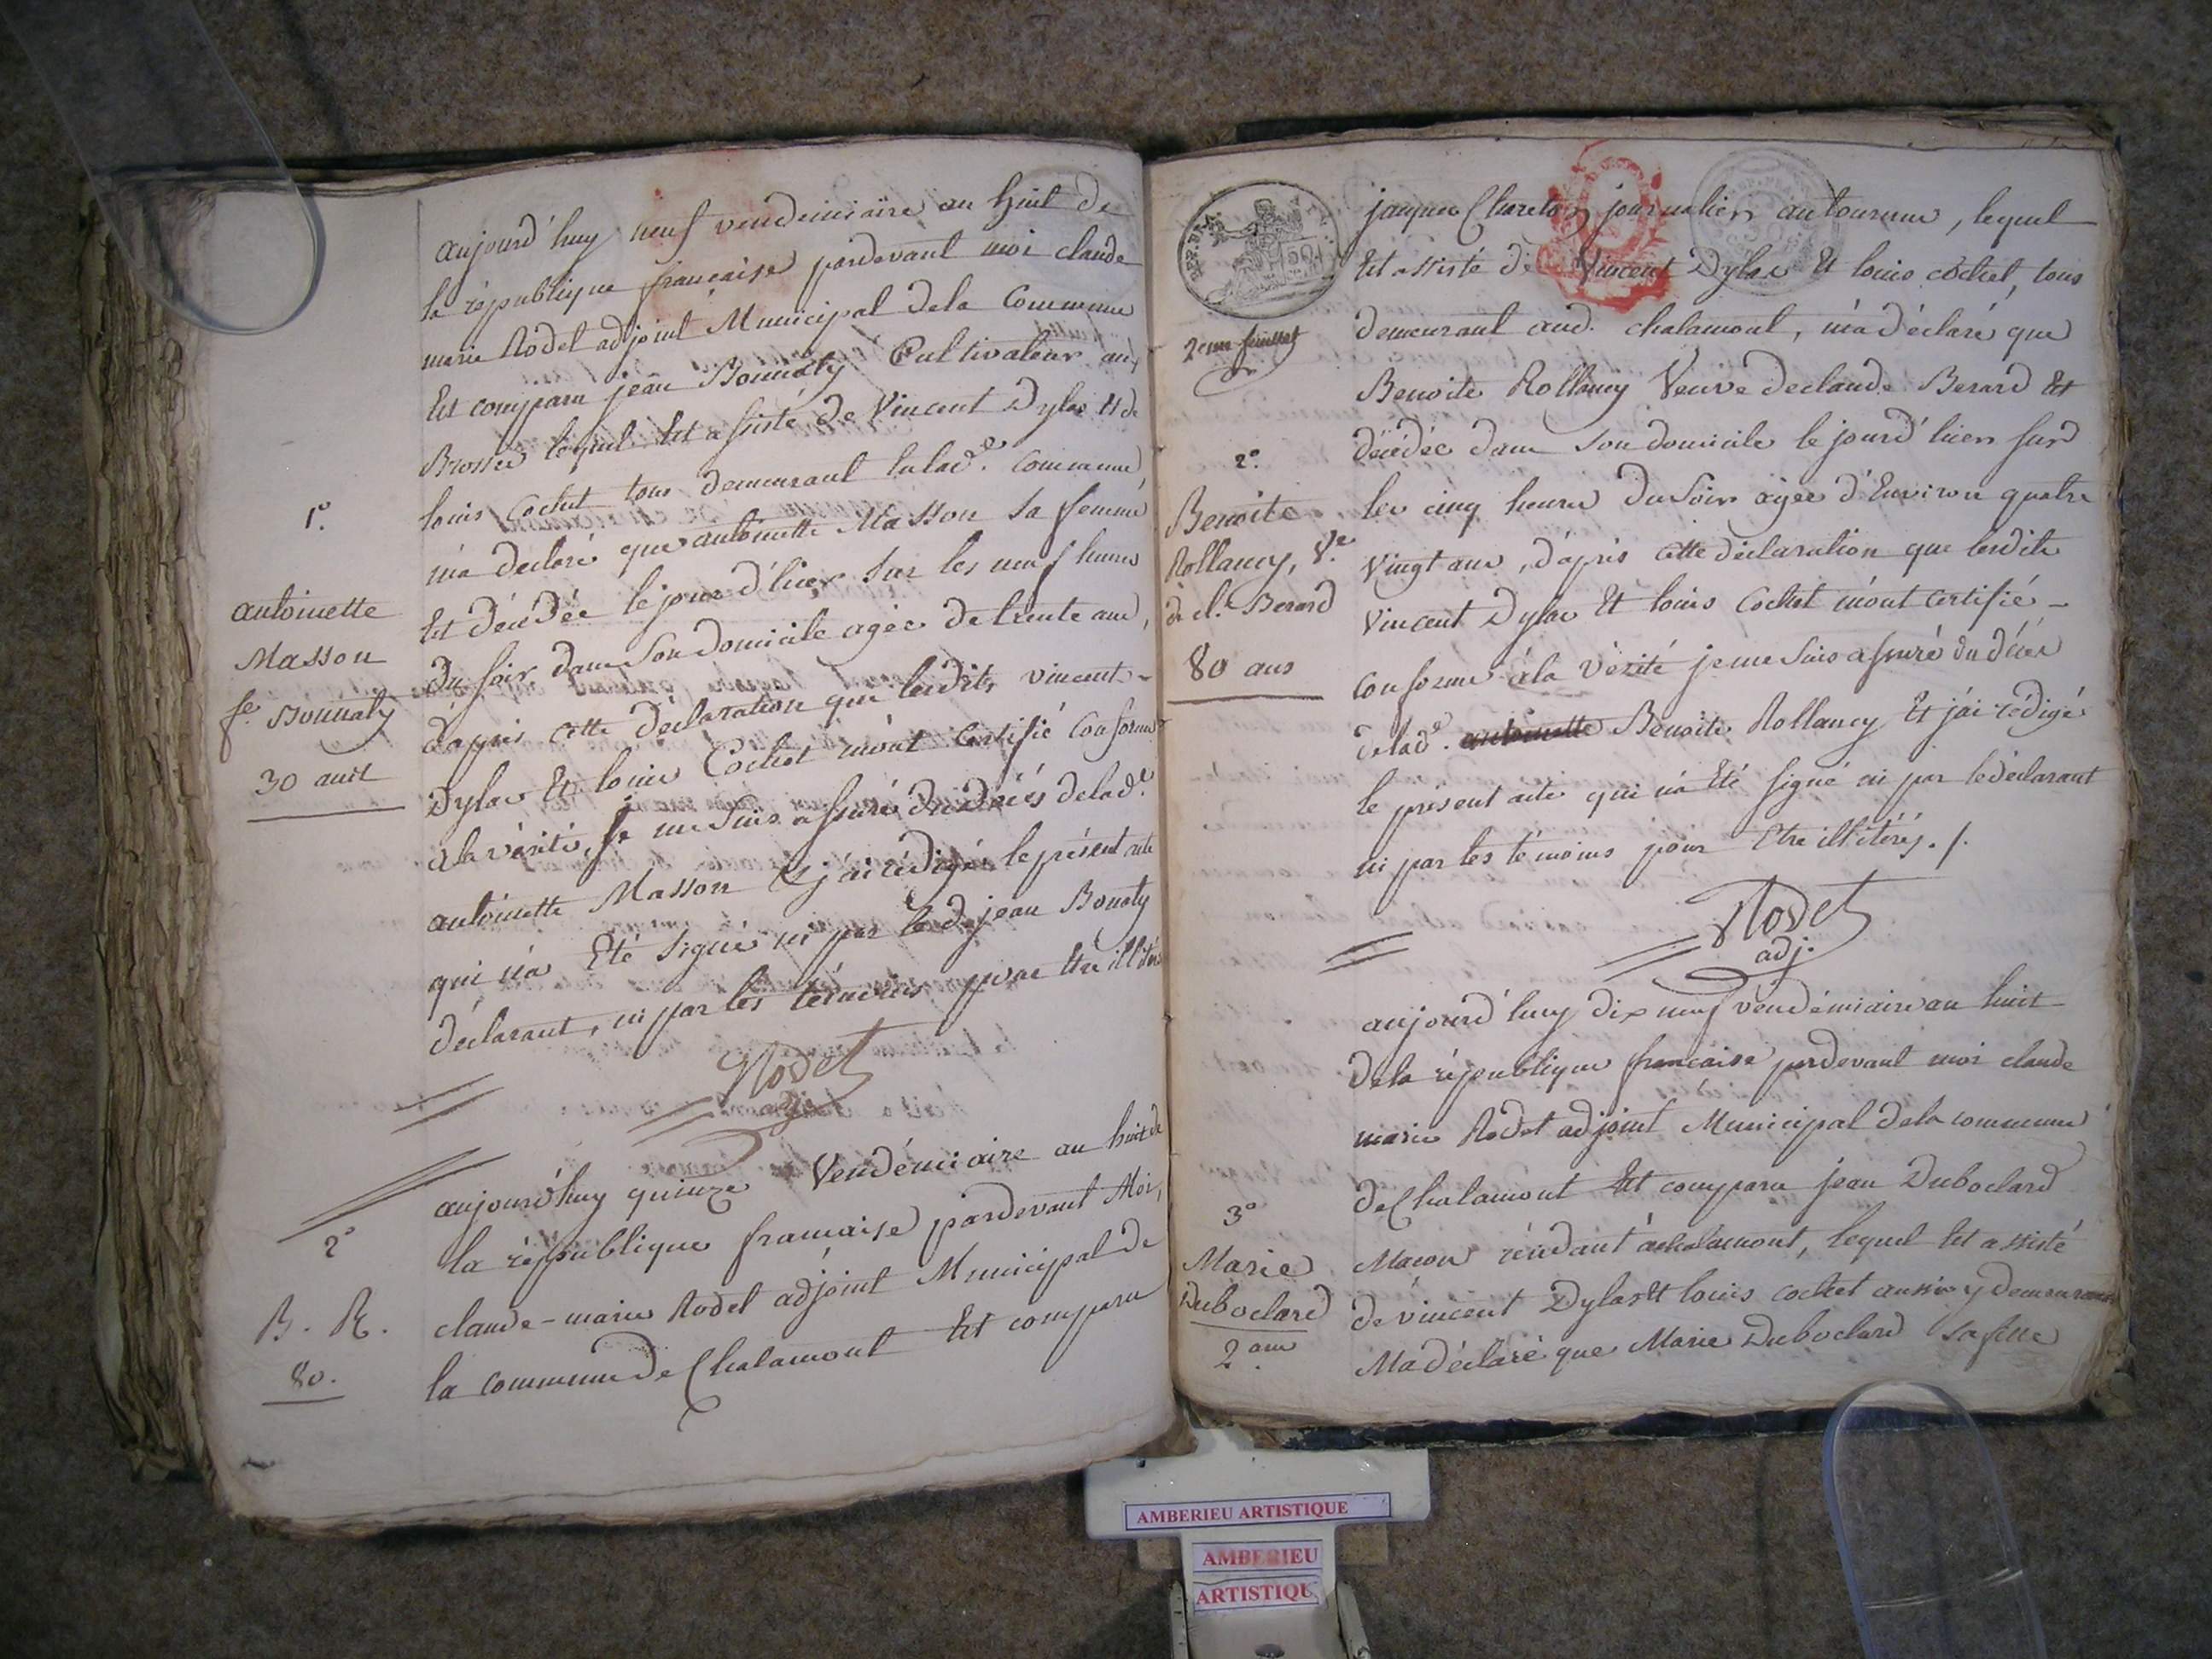 aujourd'huy neuf vendemiaire an huit de
la république française pardevant moi claude
marie Rodet adjoint Municipal dela Commune
Est comparu jean Bonnaty Cultivateur aux
Brosses lequel Est assisté de Vincent Dylas Et de
louis Cochet tous demeurant en lad.e Commune,
m'a declaré que antoinette Masson sa femme
Est décédée le jour d'hier sur les neuf heures
du soir dans son domicile agée de trente ans,
d'après cette déclaration que lesdits vincent
Dylas Et louis Cochet m'ont Certifié Conforme
a la vérité, je me suis assuré du décès delad.e
antoinette Masson Et j'ai rédigé le présent acte
qui n'a Eté signé ni par led. jean Bonaty
déclarant, ni par les témoins pour Etre illitérés
Rodet
adj.
1.o
antoinette
Masson
f.e Bonnaty
30 ans
aujourd'huy quinze Vendémiaire an huit de
la république française pardevant Moi,
claude-marie Rodet adjoint Municipal de
la commune de Chalamont Est comparu
2o
B. R.
80.
REP. FRA.
50
2eme feuillet
jaques Chareton journalier au tournux, lequel
Est assisté de Vincent Dylas Et louis cochet, tous
demeurant aud. chalamont, m'a déclaré que
Benoite Rollancy Veuve de claude Berard Est
décédée dans son domicile le jourd'hier sur
les cinq heures du soir agée d'Environ quatre
Vingt ans, d'après cette déclaration que lesdits
Vincent Dylas Et louis Cochet m'ont certifié
conforme à la Vérité je me suis assuré du décès
delad.e antoinette Benoite Rollancy Et j'ai rédigé
le présent acte qui n'a Eté signé ni par le déclarant
ni par les témoins pour Etre illitérés ./.
Rodet
adj.
2.o
Benoite
Rollancy, V.e
de cl. Berard
80 ans
aujourd'huy dix neuf vendémiaire an huit
dela république française pardevant moi claude
marie Rodet adjoint Municipal dela commune
de Chalamont Est comparu jean Duboclard
Macon résidant à chalamont, lequel Est assisté
de vincent Dylas Et louis cochet aussi y demeurants
Ma déclaré que Marie Duboclard sa fille
3o
Marie
Duboclard
2 ans
AMBERIEU ARTISTIQUE
AMBERIEU
ARTISTIQU